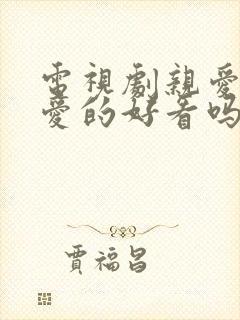 電視劇親愛
愛的好看嗎
賈福昌